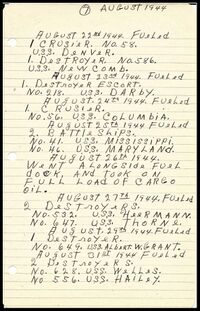 ⑦ AUGUST 1944
AUGUST 22nd 1944. FUELED
1 CRUSIER. No. 58.
U.S.S. DENVER.
1. DESTROYER No. 586.
U.S.S. NEWCOMB.
AUGUST 23rd 1944. FUELED
1. DESTROYER ESCORT.
No. 218. U.S.S. DARBY.
AUGUST. 24th 1944. FUELED
1 CRUSIER.
No. 56. U.S.S. COLUMBIA.
AUGUST 25th 1944. FUELED
2. BATTLE SHIPS.
No. 41. U.S.S. MISSISSIPPI.
No. 46. U.S.S. MARYLAND.
AUGUST 26th 1944.
WENT ALONGSIDE FUEL
DOCK, AND TOOK ON
FULL LOAD OF CARGO
OIL.
AUGUST 27th 1944. FUELED
2 DESTROYERS.
No. 532. U.S.S. HEERMANN.
No. 647. U.S.S. THORNE.
AUGUST 29th 1944. FUELED
1 DESTROYER.
No. 649. U.S.S. ALBERT. W. GRANT.
AUGUST 31st 1944 FUELED
2 DESTROYERS.
No. 628. U.S.S. WELLES.
No. 556. U.S.S. HAILEY.